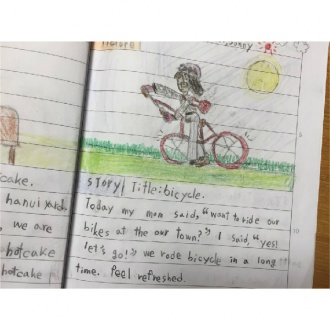 cake.
hanui yard.
we are
hotcake
hotcake
Story Title: bicycle.
Today my mom said, "want to ride our
bikes at the our town?" I said, "yes!
let's go!" we rode bicycle in a long
time. feel refreshed.